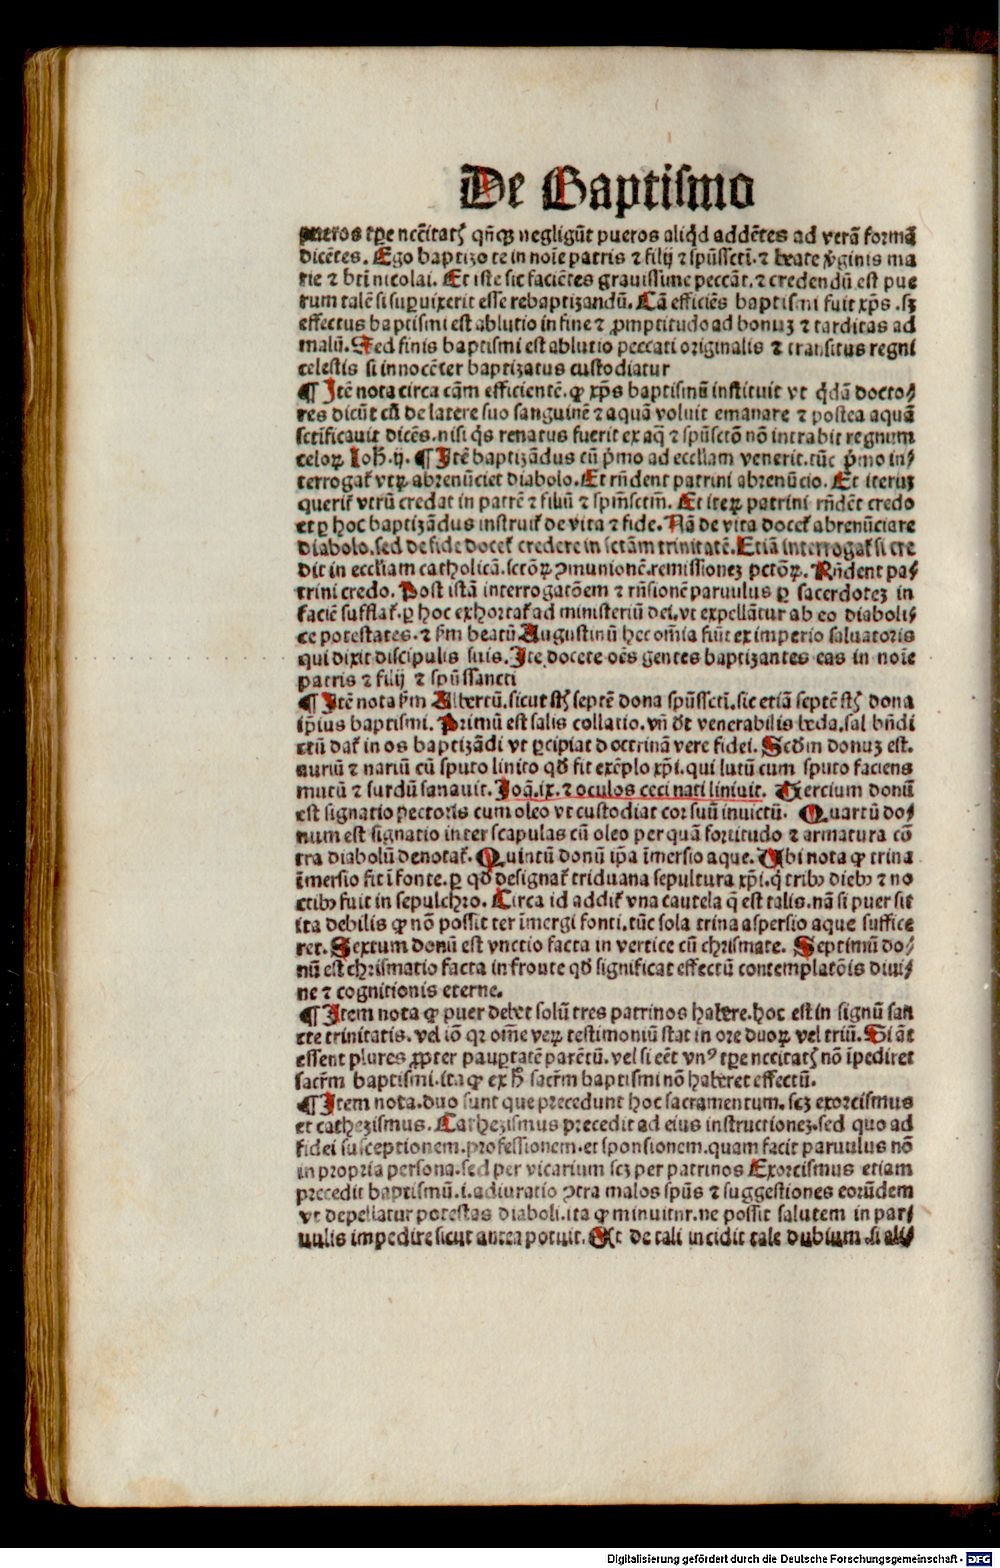 De Baptismo
pueros tꝑe nccītatꝭ qñcꝫ negligūt pueros aliq̇d addētes ad verā formā
dicētes. Ego baptizo te in noīe patris ⁊ filij ⁊ spūssctī. ⁊ beate v̇ginis ma
rie ⁊ btī nicolai. Et iste sic faciētes grauissime peccāt. ⁊ credendū est pue
rum talē si suꝑuixerit esse rebaptizandū. Cā efficiēs baptismi fuit xp̄s. sꝫ
effectus baptismi est ablutio in fine ⁊ ꝓmptitudo ad bonuꝫ ⁊ tarditas ad
malū. Sed finis baptismi est ablutio peccati originalis ⁊ transitus regni
celestis si innocēter baptizatus custodiatur
¶ Itē nota circa cām efficientē. ꝙ xp̄s baptismū instituit vt q̇dā docto⸗
res dicūt cū de latere suo sanguinē ⁊ aquā voluit emanare ⁊ postea aquā
sctīficauit dicēs. nisi q̇s renatus fuerit ex aq̄ ⁊ spūsctō nō intrabit regnum
celoꝝ Ioh̄. ij. ¶ Itē baptizādus cū p̄mo ad eccl̄iam venerit. tūc p̄mo in⸗
terrogat᷑ vtꝝ abrenūciet diabolo. Et rn̄dent patrini abrenūcio. Et iteruꝫ
querit᷑ vtrū credat in patrē ⁊ filiū ⁊ spm̄sctm̄. Et iteꝝ patrini rn̄dēt credo
et ꝑ hoc baptizādus instruit᷑ de vita ⁊ fide. Nā de vita docet᷑ abrenūciare
diabolo. sed de fide docet᷑ credere in sctām trinitatē. Etiā interrogat᷑ si cre
dit in eccl̄iam catholicā. sctōꝝ ꝯmunionē. remissioneꝫ pctōꝝ. Rn̄dent pa⸗
trini credo. Post istā interrogatōem ⁊ rn̄sionē paruulus ꝑ sacerdoteꝫ in
faciē sufflat᷑. ꝑ hoc exhortat᷑ ad ministeriū dei. vt expellātur ab eo diaboli⸗
ce potestates. ⁊ ẜm beatū Augustinū hec om̄ia fiūt ex imperio saluatoris
qui dixit discipulis suis. Ite docete oēs gentes baptizantes eas in noīe
patris ⁊ filij ⁊ spūssancti
¶ Itē nota ẜm Albertū. sicut st̄ septē dona spūssctī. sic etiā septē st̄ dona
ip̄ius baptismi. Primū est salis collatio. vn̄ dt̄ venerabilis beda. sal bn̄di
ctū dat᷑ in os baptizādi vt ꝑcipiat doctrinā vere fidei. Scd̄m donuꝫ est.
auriū ⁊ nariū cū sputo linito qd̄ fit exēplo xp̄i. qui lutū cum sputo faciens
mutū ⁊ surdū sanauit. Ioā. ix. ⁊ oculos ceci nati liniuit. Tercium donū
est signatio pectoris cum oleo vt custodiat cor suū inuictū. Quartū do⸗
num est signatio inter scapulas cū oleo per quā fortitudo ⁊ armatura cō
tra diabolū denotat᷑. Quintū donū ip̄a īmersio aque. Vbi nota ꝙ trina
īmersio fit ī fonte. ꝑ qd̄ designat᷑ triduana sepultura xp̄i. q̄ tribꝰ diebꝰ ⁊ no
ctibꝰ fuit in sepulchro. Circa id addit᷑ vna cautela q̄ est talis. nā si puer sit
ita debilis ꝙ nō possit ter īmergi fonti. tūc sola trina aspersio aque suffice
ret. Sextum donū est vnctio facta in vertice cū chrismate. Septimū do⸗
nū est chrismatio facta in fronte qd̄ significat effectū contemplatōis diui⸗
ne ⁊ cognitionis eterne.
¶ Item nota ꝙ puer debet solū tres patrinos habere. hoc est in signū san
cte trinitatis. vel iō qꝛ om̄e veꝝ testimoniū stat in ore duoꝝ vel triū. Si āt
essent plures ꝓpter pauꝑtatē parētū. vel si eēt vnꝰ tꝑe nccītatꝭ nō īpediret
sacr̄m baptismi. ita ꝙ ex h̄ sacr̄m baptismi nō haberet effectū.
¶ Item nota. duo sunt que precedunt hoc sacramentum. scꝫ exorcismus
et cathezismus. Cathezismus precedit ad eius instructioneꝫ. sed quo ad
fidei susceptionem. professionem. et sponsionem. quam facit paruulus nō
in propria persona. sed per vicarium scꝫ per patrinos Exorcismus etiam
precedit baptismū. i. adiuratio ꝯtra malos spūs ⁊ suggestiones eorūdem
vt depellatur potestas diaboli. ita ꝙ minuitur. ne possit salutem in par⸗
uulis impedire sicut antea potuit. Et de tali incidit tale dubium si ali⸗
Digitalisierung gefördert durch die Deutsche Forschungsgemeinschaft - DFG